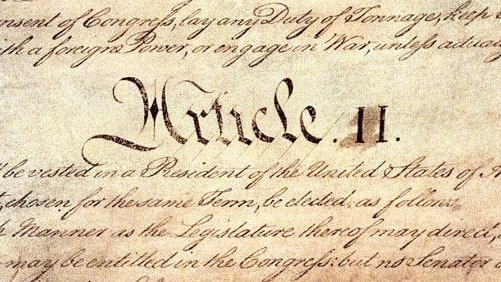 nsent of Congress, lay any Duty of Tonnage, keep
ith a foreign Power, or engage in War, unless actua
Article. II.
be vested in a President of the United States of A
, chosen for the same Term, be elected, as follows
h Manner as the Legislature thereof may direct,
may be entitled in the Congress: but no Senator